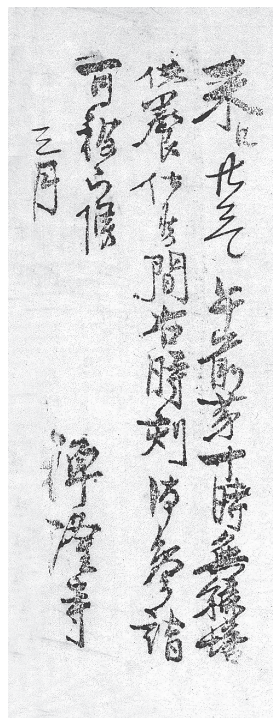 来ル廿 午前第十時無縁塔
供養仕候間右時刻御参詣
可被下候
三月
禅隆寺